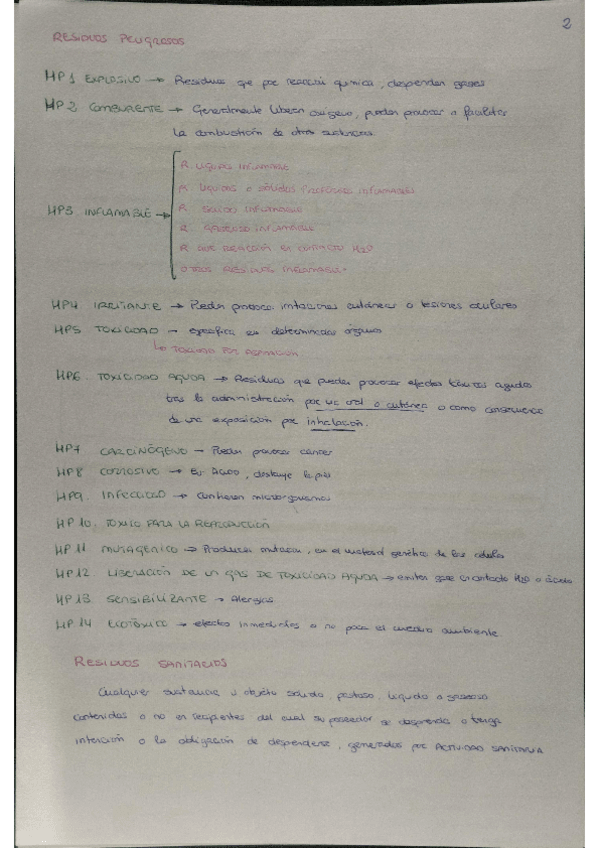 2
RESIDUOS PELIGROSOS
HP1 EXPLOSIVO → Residuos que por reacción química, desprenden gases
HP2 COMBURENTE → Generalmente liberan oxígeno, pueden provocar o facilitar
la combustión de otras sustancias.
R. LÍQUIDO INFLAMABLE
R. LÍQUIDOS O SÓLIDOS PIROFÓRICOS INFLAMABLES
HP3 INFLAMABLE → R. SÓLIDO INFLAMABLE
R. GASEOSO INFLAMABLE
R. QUE REACCIÓN EN CONTACTO H2O
OTROS RESIDUOS INFLAMABLES
HP4 IRRITANTE → Pueden provocar irritaciones cutáneas o lesiones oculares
HP5 TOXICIDAD → específica en determinados órganos
↳ TOXICIDAD POR ASPIRACIÓN
HP6. TOXICIDAD AGUDA → Residuos que pueden provocar efectos tóxicos agudos
tras la administración por vía oral o cutánea o como consecuencia
de una exposición por inhalación.
HP7 CARCINÓGENO → Pueden provocar cáncer
HP8 CORROSIVO → Es Ácido, destruye la piel
HP9. INFECCIOSO → Contienen microorganismos
HP10. TÓXICO PARA LA REPRODUCCIÓN
HP11 MUTAGÉNICO → Producen mutación, en el material genético de las células
HP12 LIBERACIÓN DE UN GAS DE TOXICIDAD AGUDA → emiten gases en contacto H2O o ácido
HP13 SENSIBILIZANTE → Alergias.
HP14 ECOTÓXICO → efectos inmediatos o no para el medio ambiente.
RESIDUOS SANITARIOS
Cualquier sustancia u objeto sólido, pastoso, líquido o gaseoso
contenidos o no en recipientes del cual su poseedor se desprenda o tenga
intención o la obligación de desprenderse, generados por ACTIVIDAD SANITARIA